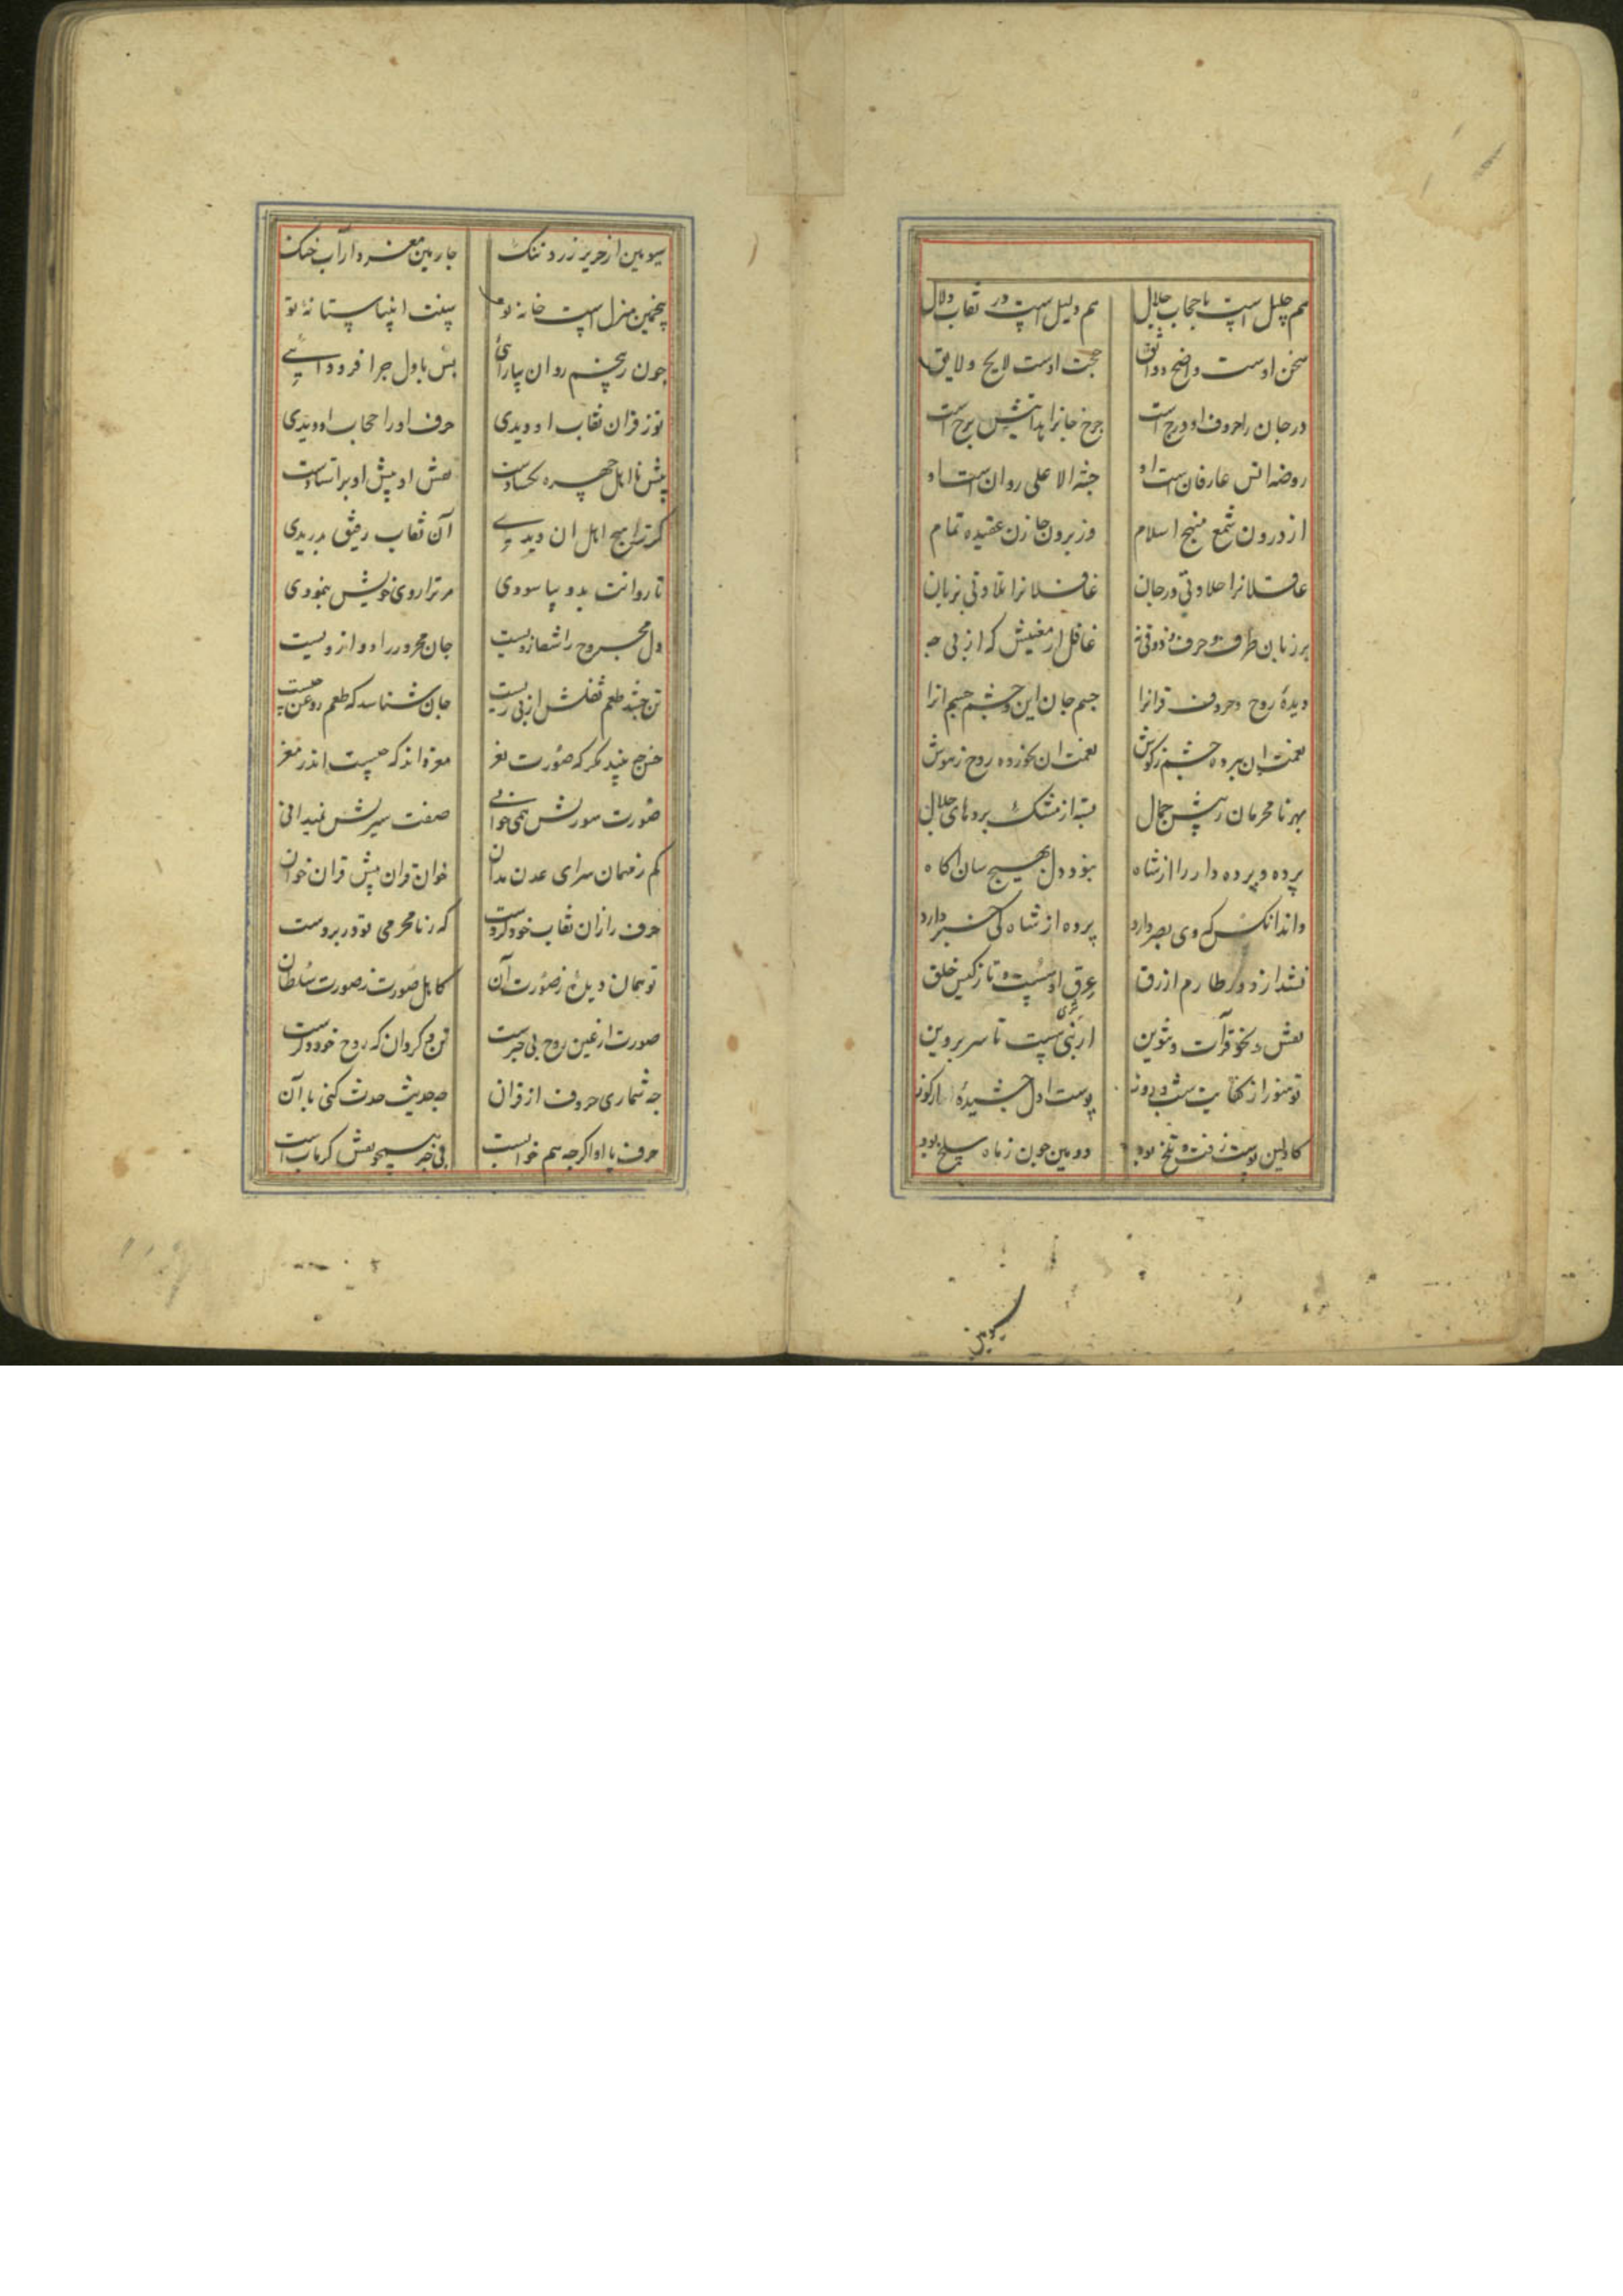 هم جلیل است با حجاب جلال هم دلیل است در نقاب دلال
سخن اوست واضح و واثق حجت اوست لایح و لایق
در جان را حروف او درج است چرخ جانرا هدایتش برج است
روضه انس عارفان است او جنة الاعلی روان است او
از درون شمع منهج اسلام وز برون حارن عقیده تمام
عاقلانرا حلاوتی در جان غافلانرا تلاوتی بزبان
بر زبان طرف حرف و ذوقی نه غافل از معنیش که از پی چه
دیدۀ روح و حروف قرانرا جسم جان این و چشم جسم انرا
نعمت ان برده چشم زکوش نعمت ان نخورده روح زهوش
بهر نامحرمان به پیش جمال بسته از مشک پردهای جلال
پرده و پرده دار را از شاه نبود دل بهیچ سان اکاه
داند انکس که وی بصر دارد پرده از شاه کی خبر دارد
نشد از دور طارم ازرق عرق او سست و تازکیش خلق
نقش و نحو قرآت و تنوین از زمی ست تا سر پروین
تو هنوز از کفایت شب و روز پوست اول چشیدۀ از کوز
کاولین پوست زفت و تلخ بود دومین چون زماه سلخ بود
سیومین
سیومین از حریر زرد تنک چارمین مغز و ار آب خنک
پنجمین منزل است خانه تو سنت انبیاست انۀ تو
چون ز پنجم روان بیارائی پس باول چرا فرود ائی
تو ز قران نقاب او دیدی حرف او را حجاب او دیدی
پیش نااهل چهره نکشادست نقش او پیش او بر استادست
کر ترا هیچ اهل ان دیدی آن نقاب رقیق بدریدی
مر ترا روی خویش بنمودی تا روانت بدو بیاسودی
دل مجروح را شفا زویست جان محرور را دوا زویست
تن چشد طعم ثفلش از پی زیست جان شناسد که طعم روغن چیست
حس چه بیند مکر که صورت نغز مغز داند که چیست اندر مغز
صورت سورش همی خوانی صفت سیرتش نمیدانی
کم ز مهمان سرای عدن مدان خوان قران پیش قران خوان
حرف را زان نقاب خود کردست که ز نامحرمی تو در پردست
تو همان دیدۀ ز صورت آن کاهل صورت ز صورت سلطان
صورت از عین روح بی خبرست تن دکر دان که روح خود دکرست
چه شماری حروف از قران چه حدیث حدث کنی با آن
حرف با او اکرچه هم خوابست بی خبر همچو نقش کرمابست